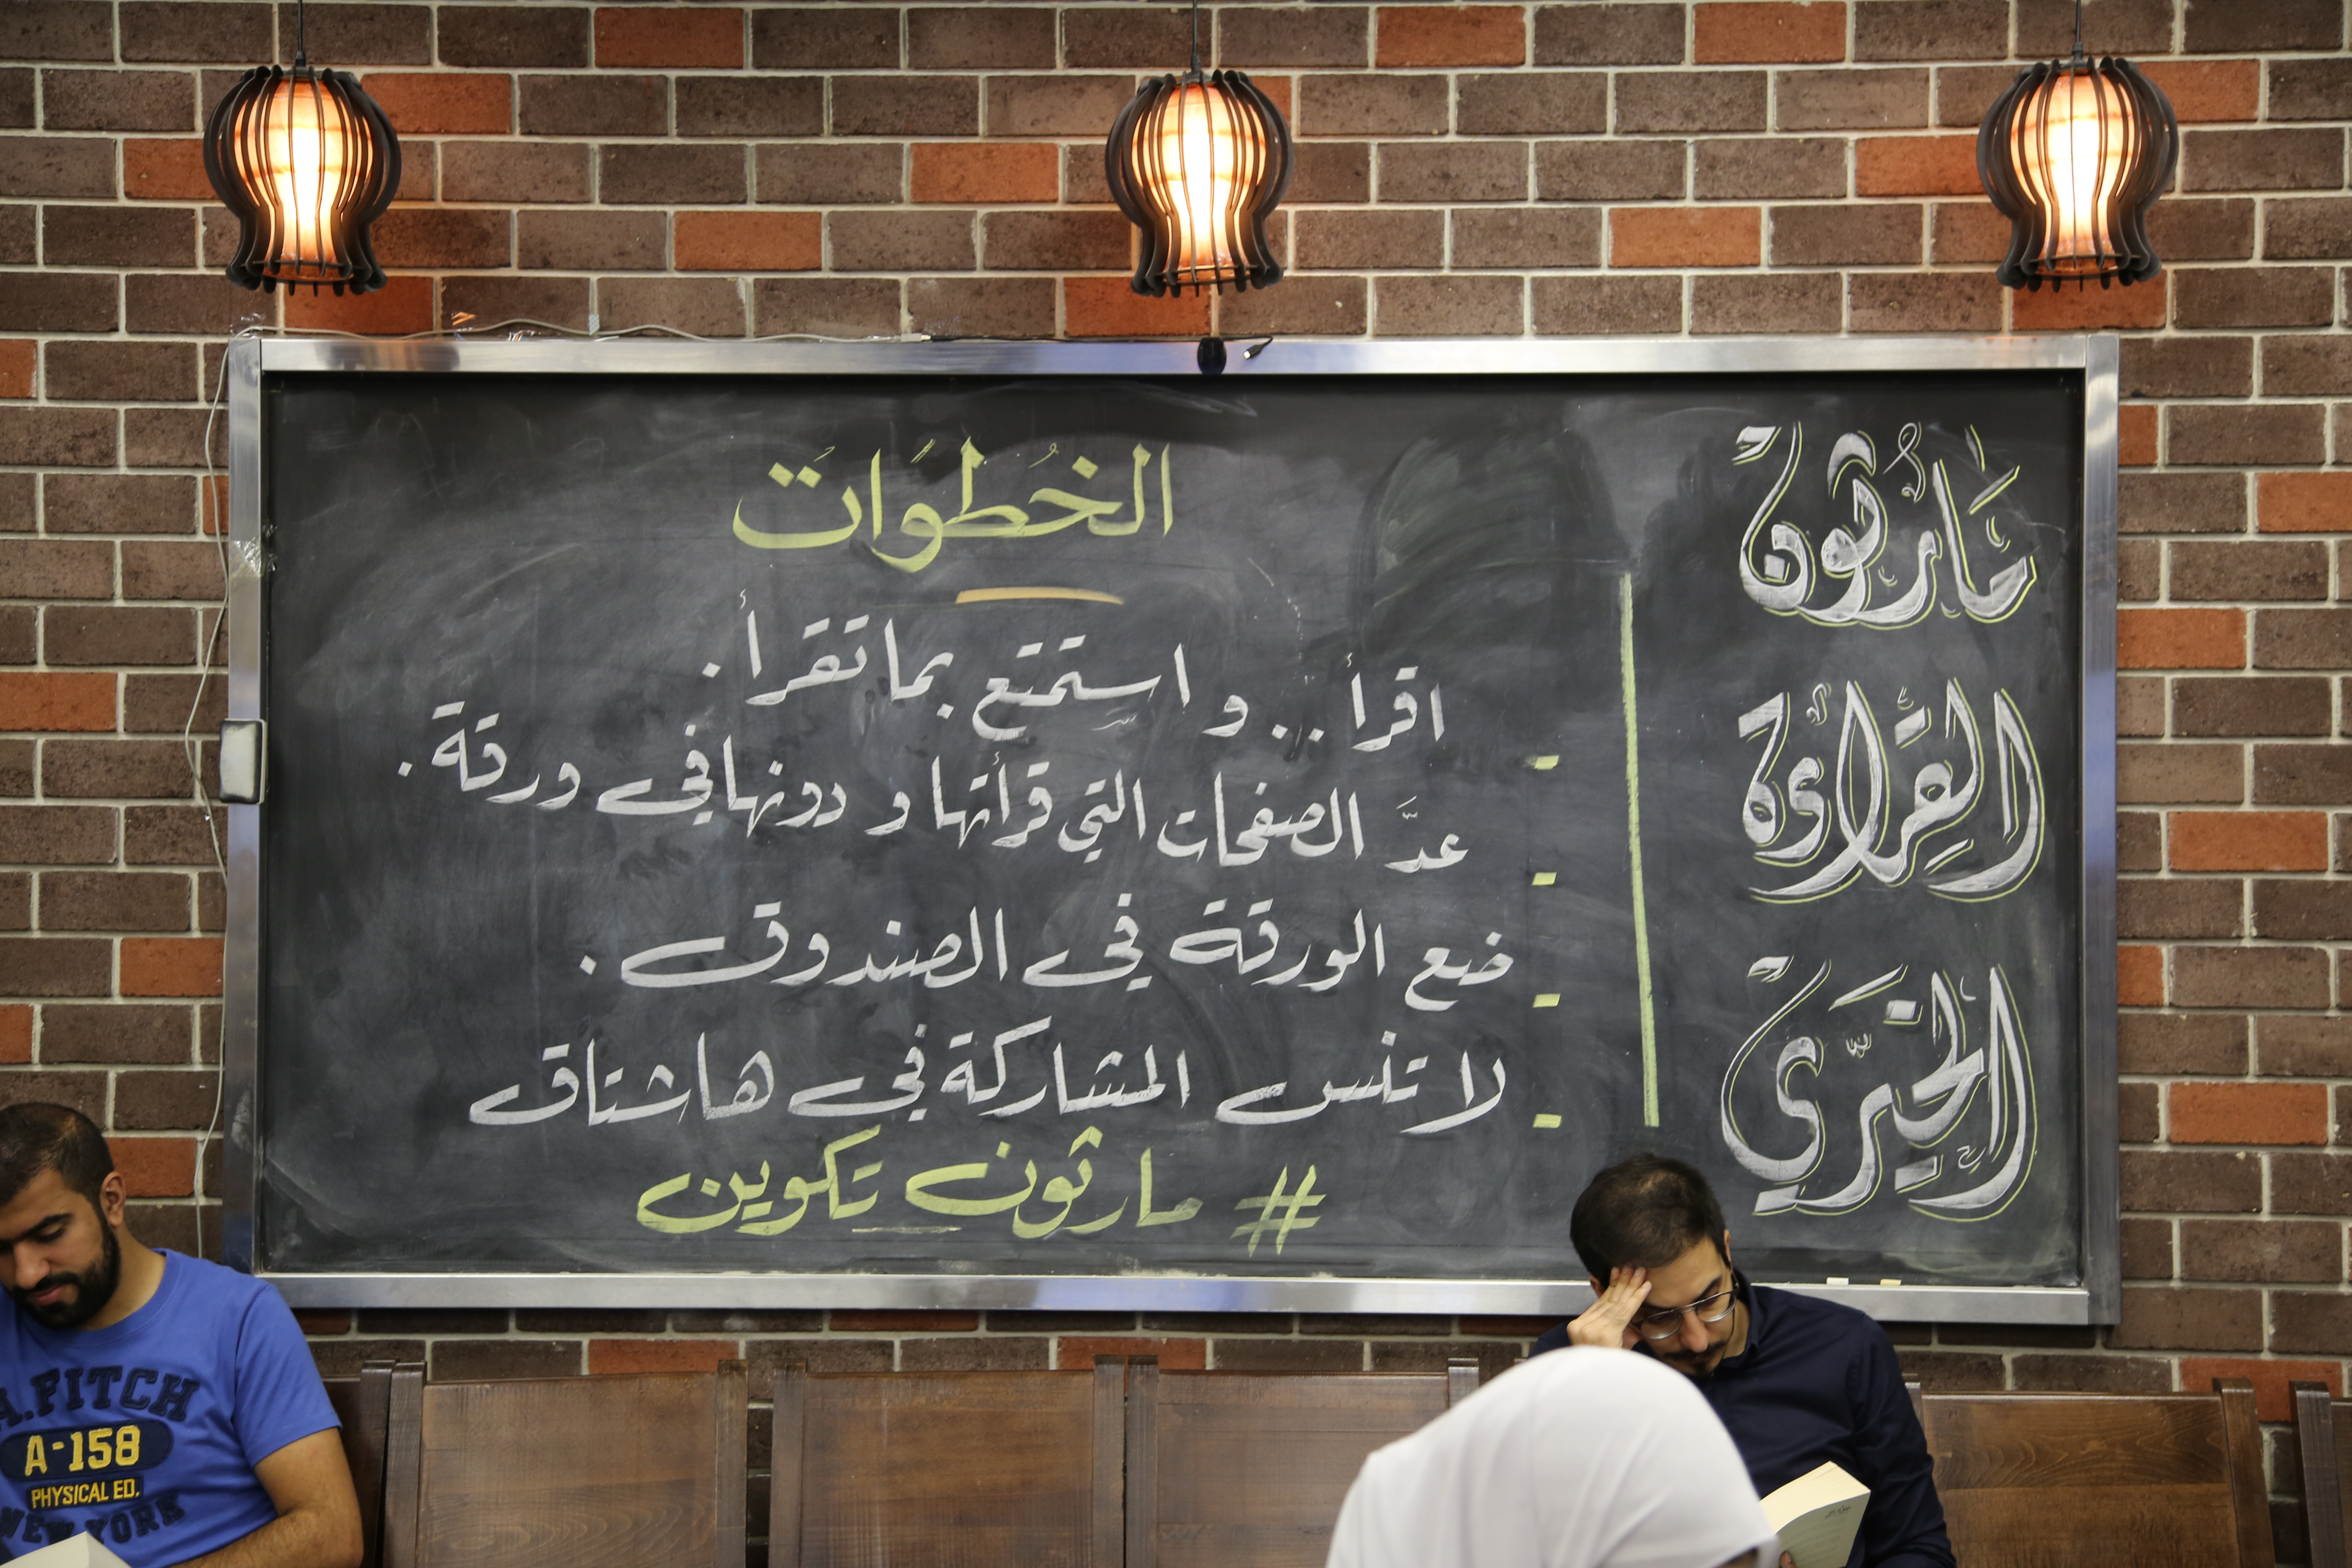 مَارثُونْ
القِرَاءَة
الخَيّرِي
الخُطُوَاتَ
- اقرأ... و استمتع بما تقرأ.
- عدَّ الصفحات التي قرأتها و دونها في ورقة.
- ضع الورقة في الصندوق.
- لا تنس المشاركة في هاشتاق
# مارثون تكوين
A.FITCH
A-158
PHYSICAL ED.
NEW YORK